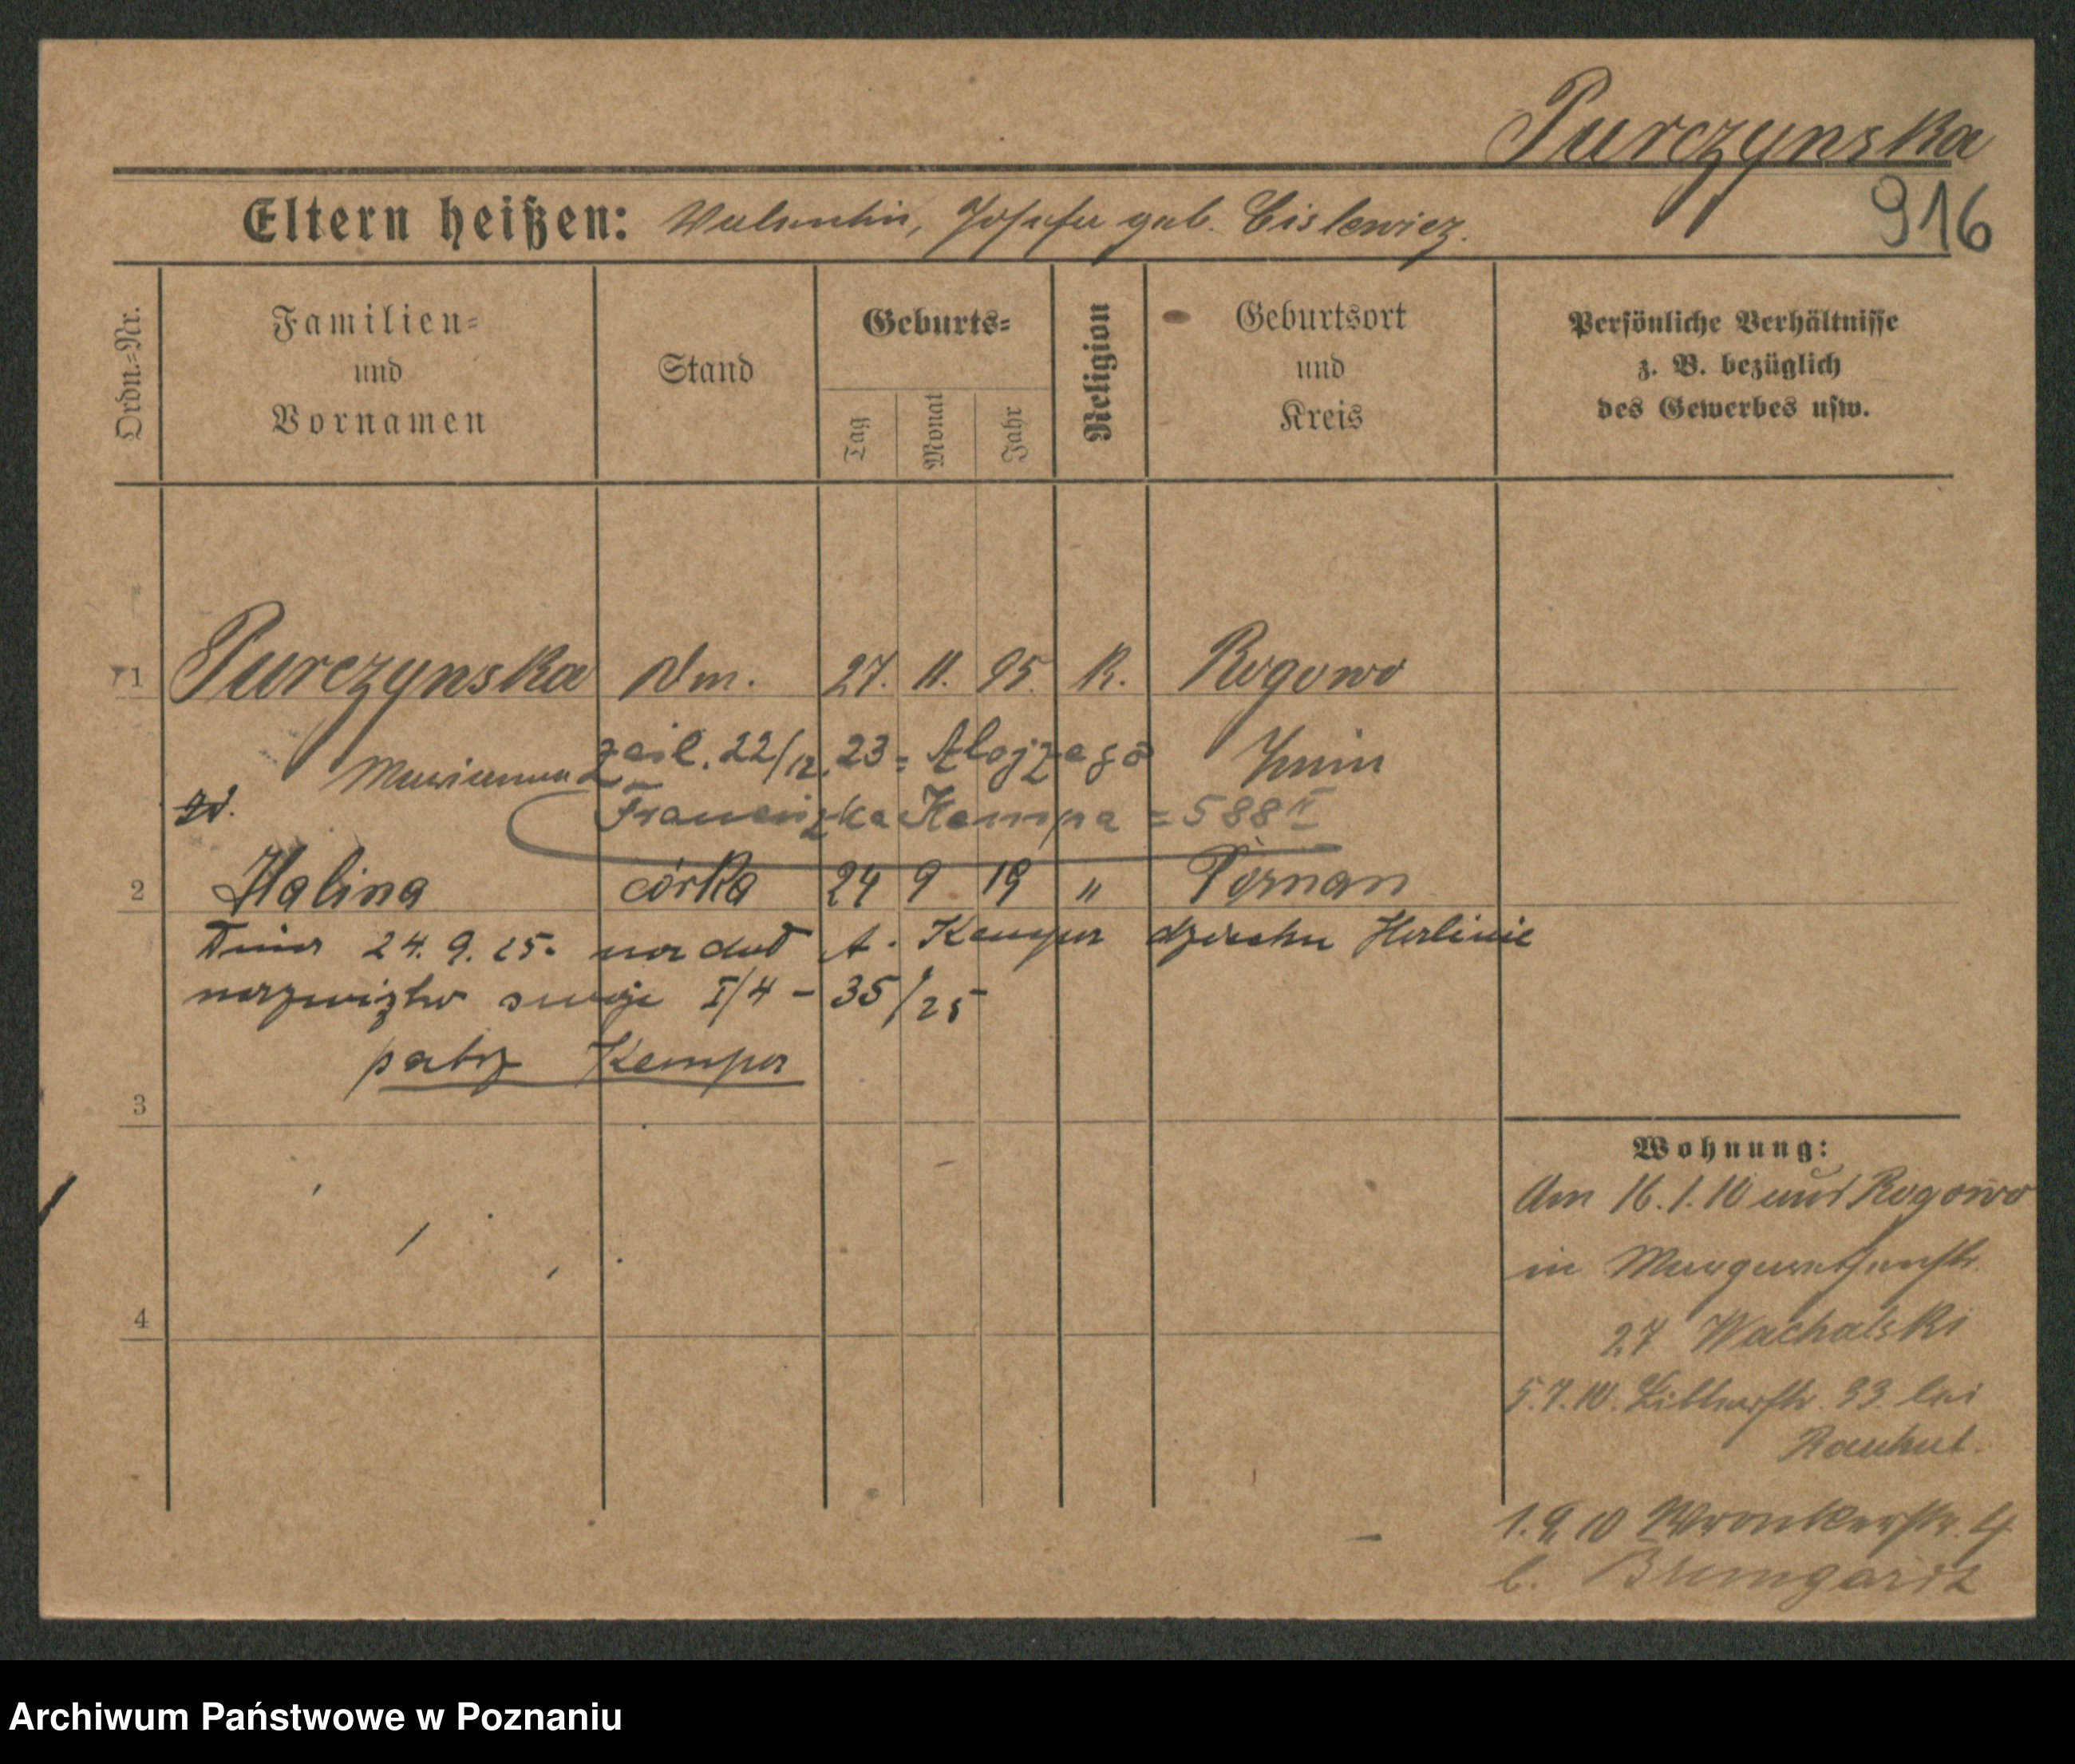 Purczynska
916
Eltern heißen: Valentin, Josefa geb. Cislewicz.
Ordn.=Nr.
Familien=
und
Vornamen
Stand
Geburts=
Tag
Monat
Jahr
Religion
Geburtsort
und
Kreis
Persönliche Verhältnisse
z. B. bezüglich
des Gewerbes usw.
1 Purczynska Dm. 27. 11. 95. K. Rogowo
Marianna zaśl. 22/12. 23 = Alojzego Znin
Franciszka Kempa = 588 II
2 Halina córka 24 9 19 " Poznan
Dnia 24. 9. 25. nadał A. Kempa dziecku Halinie
nazwisko swoje I/4 - 35/25
patrz Kempa
3
4
Wohnung:
Am 16.1.10 aus Rogowo
in Margarethenstr.
27 Wachalski
5.7.10. 33. bei
Rauhut.
1.9.10 Wronkerstr. 4
b.
Archiwum Państwowe w Poznaniu